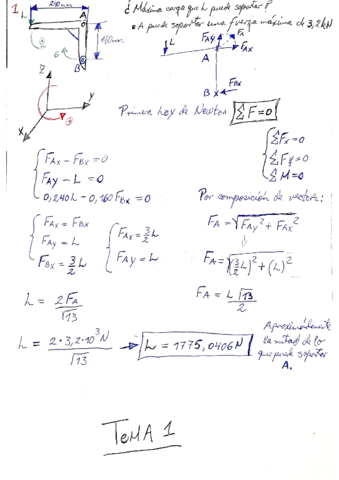 1
240mm
¿ Máxima carga que L puede soportar?
• A puede soportar una fuerza máxima de 3,2kN
L
A
160mm
B
Z
X
Y
L
FAy
FA
FAx
A
B
FBx
Primera Ley de Newton ΣF=0
ΣFx=0
ΣFy=0
ΣM=0
FAx - FBx = 0
FAy - L = 0
0,240L - 0,160FBx = 0
Por composición de vectores:
FA = √FAy² + FAx²
FAx = FBx
FAy = L
FBx = 3/2 L
FAx = 3/2 L
FAy = L
FA = √(3/2 L)² + (L)²
FA = L √13 / 2
L = 2FA / √13
L = 2·3,2·10³N / √13 → L = 1775,0406N
Aproximadamente
la mitad de lo
que puede soportar
A.
TEMA 1